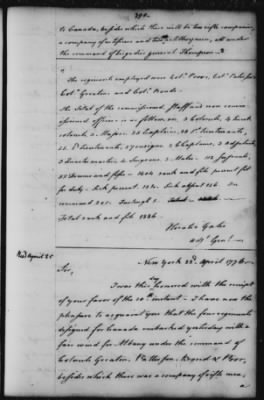 290.
to Canada, besides which there will be two rifle companies,
a company of artificers and two of artillerymen, all under
the command of brigadier general Thompson."
"The regiments employed were Col. Poor, Col. Paterson
Col. Greaton and Col. Bond.
The total of the commissioned, staff and non commis-
sioned officers is as follows viz. 3 Colonels, 4 Lieut.
colonels, 3 Majors, 25 Captains, 28 1st Lieutenants,
22 2d Lieutenants, 27 ensigns, 2 Chaplains, 3 adjutants,
3 Quarter masters, 4 Surgeons, 3 Mates, 112 Serjeants,
Drums and fifes rank and file present fit
for duty Sick present Sick absent On
command Furlough
Total rank and file
Horatio Gates
Adj. Genl.
Wed April 25
New York 22d. April 1776.
Sir,
I was this day honored with the receipt
of your favor of the 20th instant. I have now the
pleasure to acquaint you that the four regiments
designed for Canada embarked yesterday with a
fair wind for Albany under the command of
Colonels Greaton, Patterson, Bond & Poor,
besides which there was a company of rifle men,
a